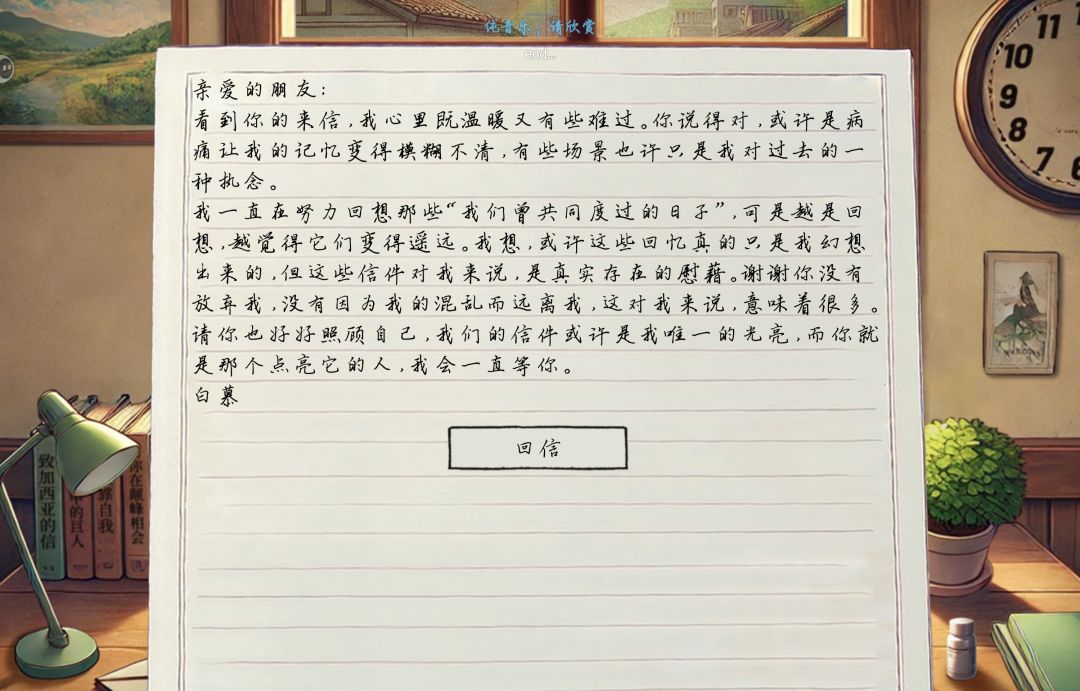 纯音乐，请欣赏
end...
亲爱的朋友：
看到你的来信，我心里既温暖又有些难过。你说得对，或许是病
痛让我的记忆变得模糊不清，有些场景也许只是我对过去的一
种执念。
我一直在努力回想那些“我们曾共同度过的日子”，可是越是回
想，越觉得它们变得遥远。我想，或许这些回忆真的只是我幻想
出来的，但这些信件对我来说，是真实存在的慰藉。谢谢你没有
放弃我，没有因为我的混乱而远离我，这对我来说，意味着很多。
请你也好好照顾自己，我们的信件或许是我唯一的光亮，而你就
是那个点亮它的人，我会一直等你。
白慕
回信
致加西亚的信
中的巨人
靠自我
你在巅峰相会
11
10
9
8
7
6